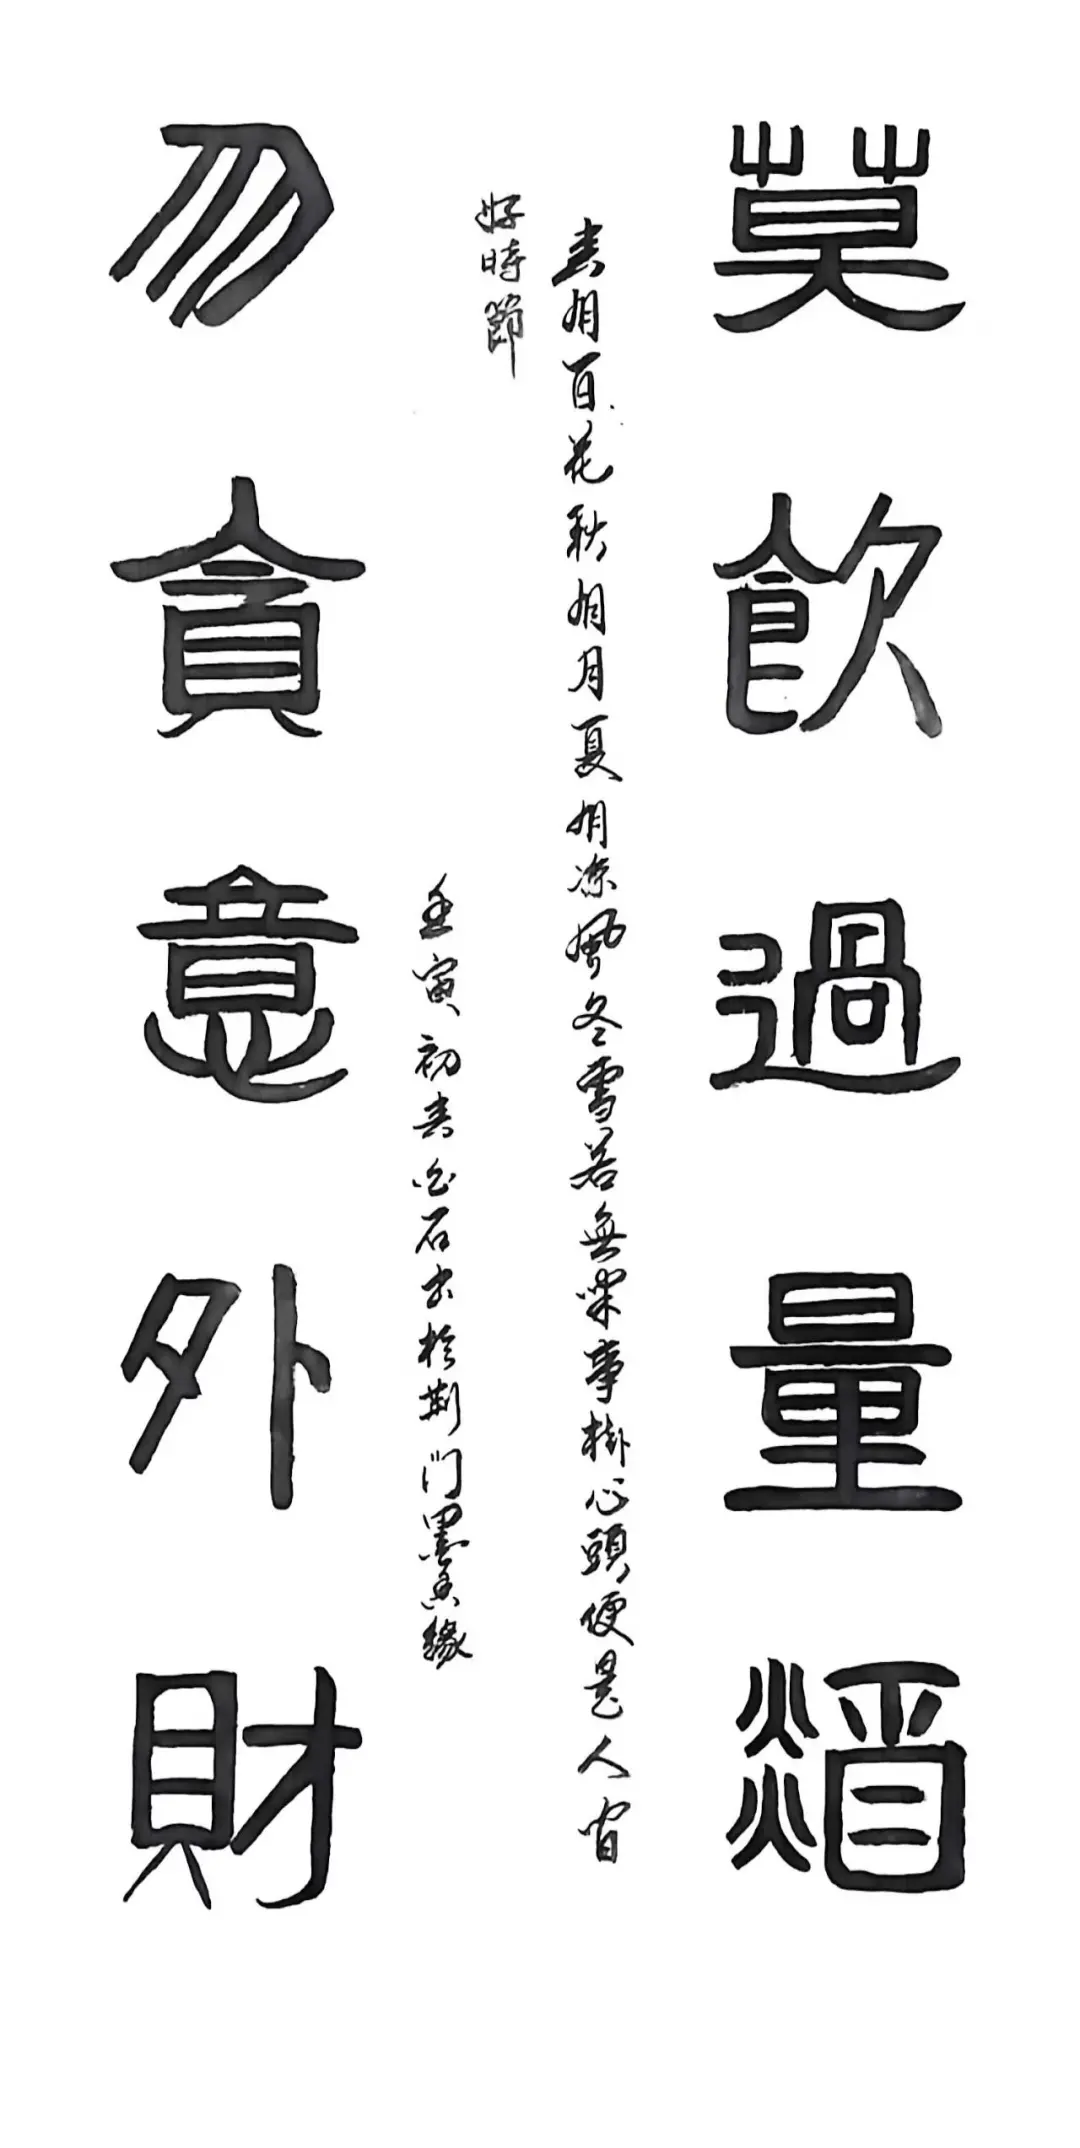 莫飲過量酒
春有百花秋有月夏有凉風冬雪若無閑事掛心頭便是人間
好時節
壬寅初春白石書於荊門墨香緣
勿貪意外財